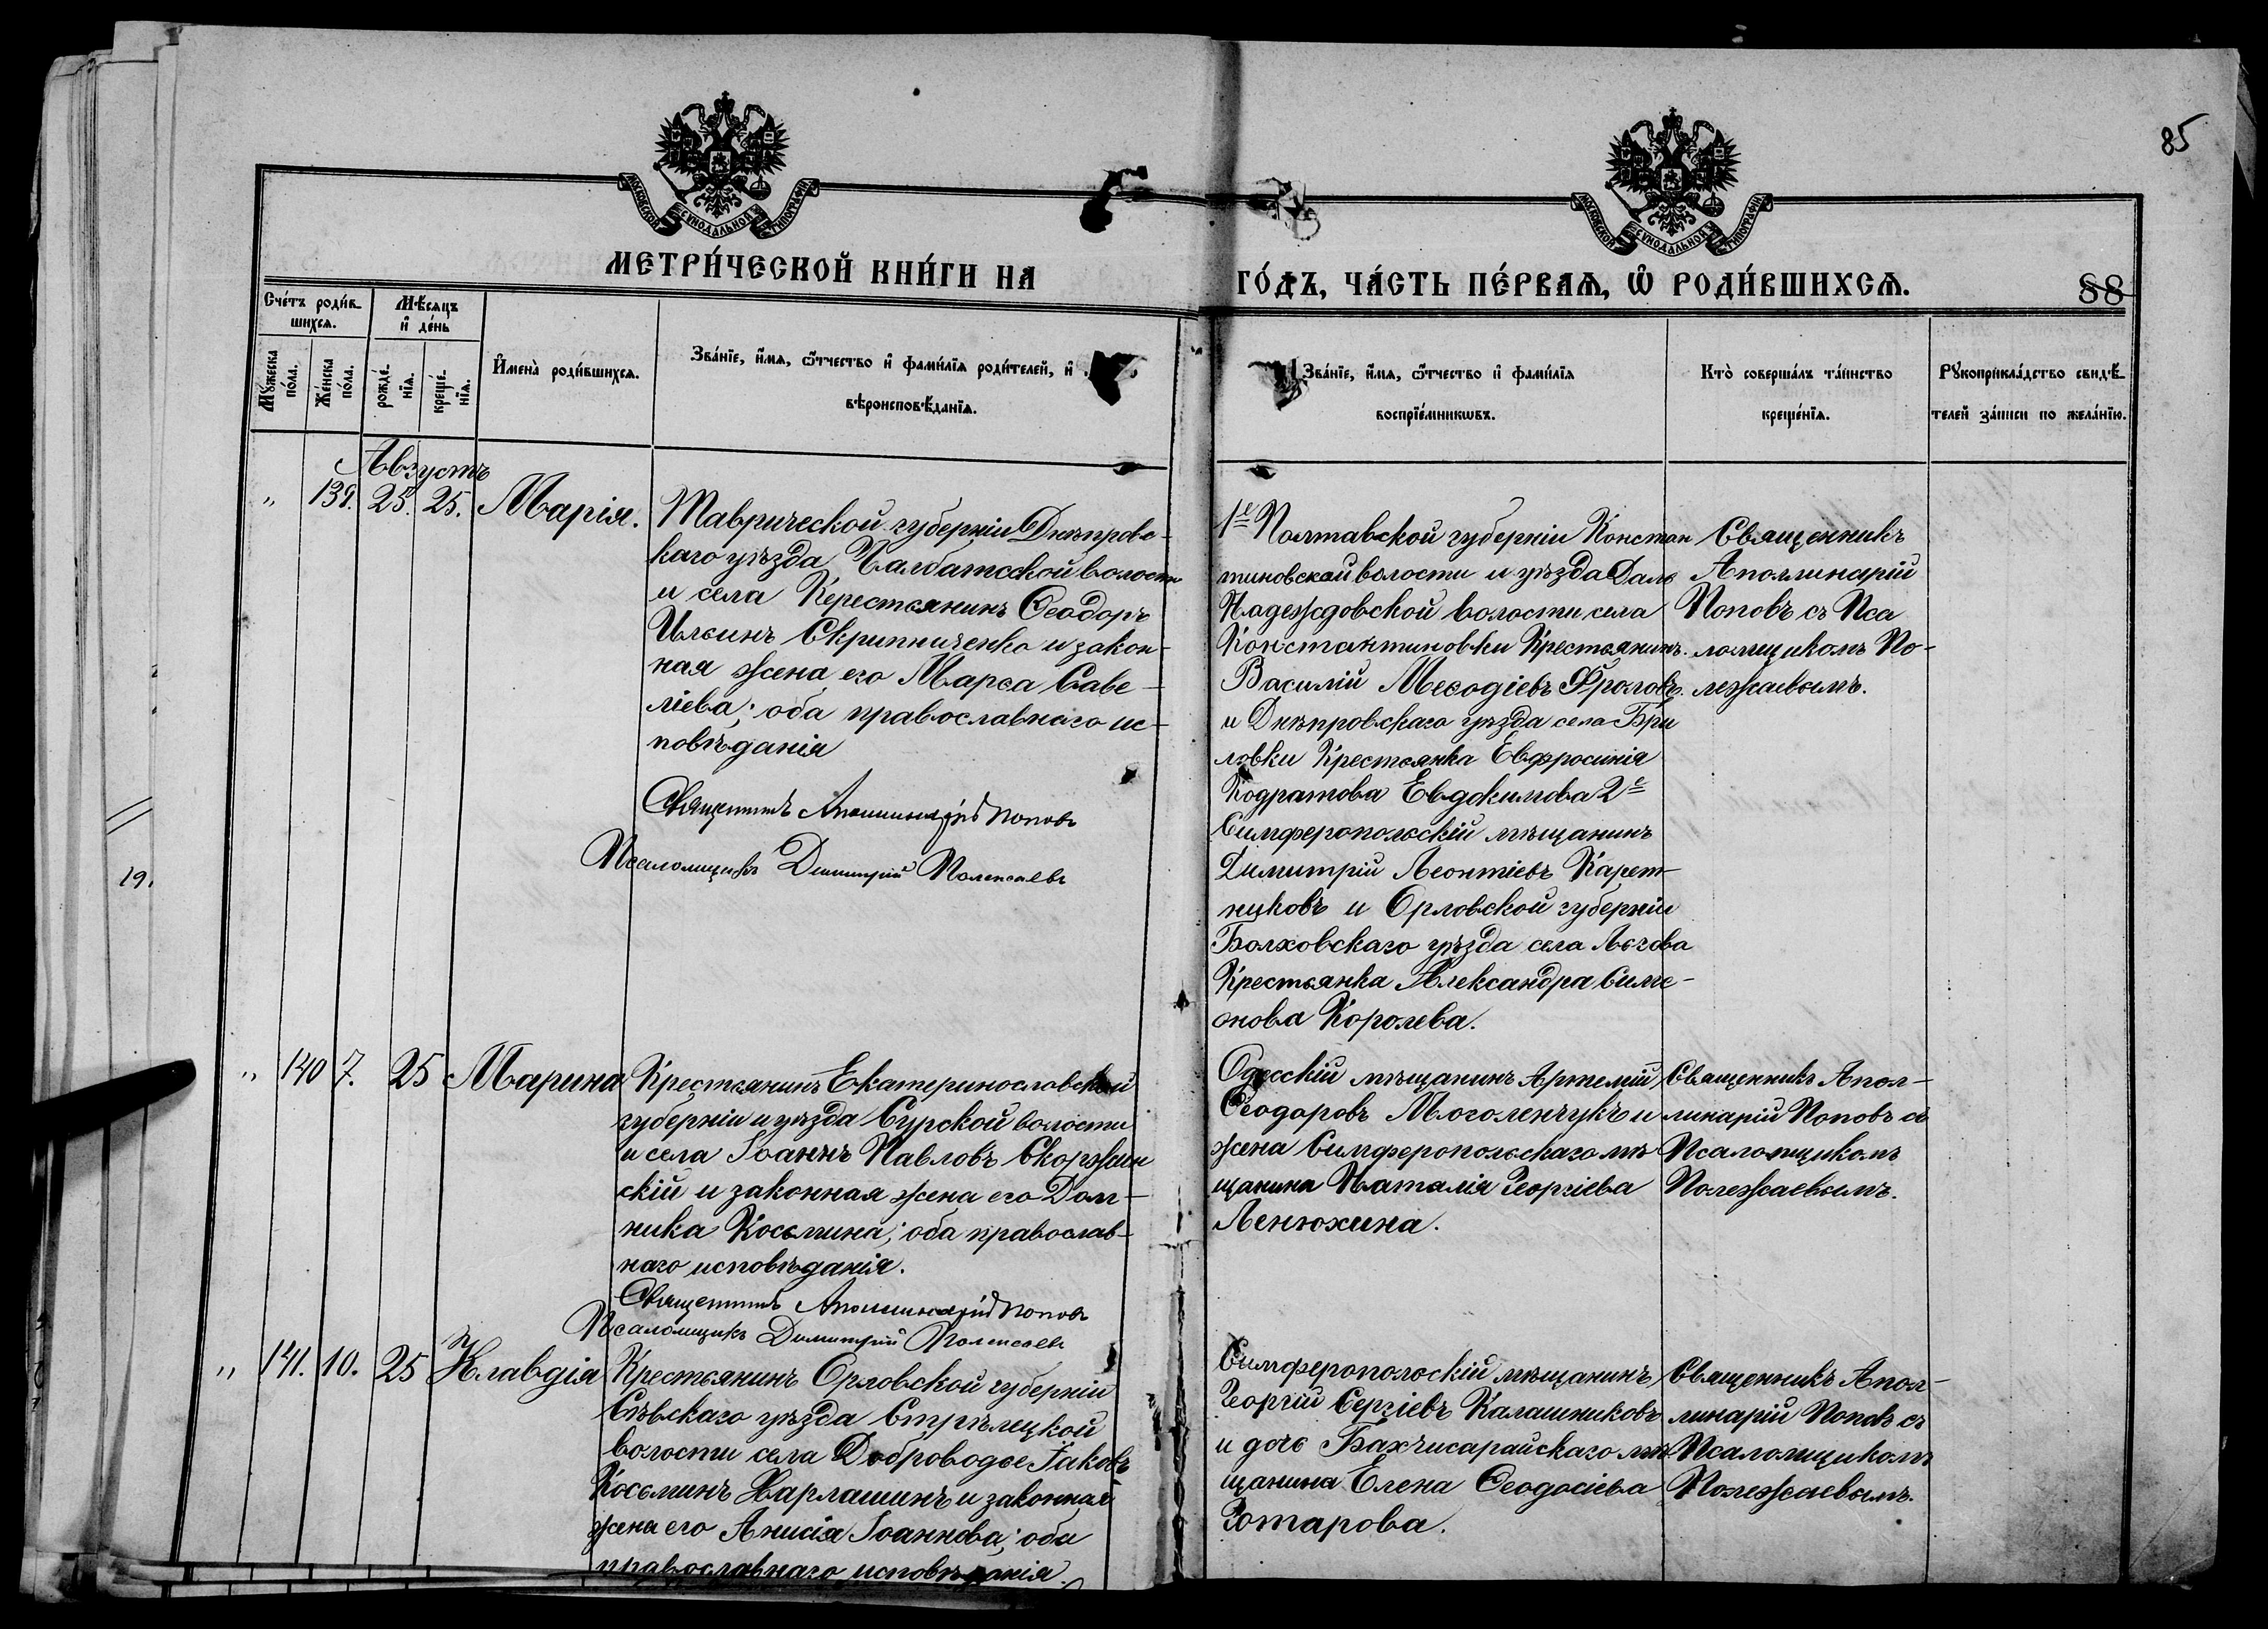 85
МОСКОВСКОЙ СѴНОДАЛЬНОЙ ТИПОГРАФІИ
МОСКОВСКОЙ СѴНОДАЛЬНОЙ ТИПОГРАФІИ
МЕТРИ́ЧЕСКОЙ КНИ́ГИ НА
ГО́ДЪ, ЧА́СТЬ ПЕ́РВАѦ, Ѿ РОДИ́ВШИХСѦ.
88
Сче́тъ роди́в-
шихсѧ.
Мѣ́сяцъ
и҆ де́нь
Мꙋ́жеска
по́ла.
Же́нска
по́ла.
рожде́-
нїѧ.
креще́-
нїѧ.
И҆мена̀ роди́вшихсѧ.
Зва́нїе, и҆́мѧ, ѻ҆́тчество и҆ фами́лїѧ роди́телей, и҆
вѣроисповѣ́данїѧ.
Зва́нїе, и҆́мѧ, ѻ҆́тчество и҆ фами́лїѧ
воспрїе́мникѡвъ.
Кто̀ соверша́лъ та́инство
креще́нїѧ.
Рꙋкоприкла́дство свидѣ́-
телей за́писи по жела́нїю.
Августъ
„ 139. 25. 25. Марія.
Таврической губерніи Днѣпровс-
каго уѣзда Чалбатсской волости
и села Керестьянинъ Ѳеодоръ
Ильинъ Скрипниченко и закон-
ная жена его Марѳа Саве-
ліева; оба православнаго ис-
повѣданія
Священникъ Аполлинарій Поповъ
Псаломщикъ Димитрій Полежаевъ
1е Полтавской губерніи Констан
тиновской волости и уѣзда Дале
Надеждовской волости села
Константиновки Крестьянинъ.
Василій Меѳодіевъ Фроловъ.
и Днѣпровскаго уѣзда села Бри
ловки Крестьянка Евфросинія
Кодратова Евдокимова 2е
Симферопольскій мѣщанинъ
Димитрій Леонтіевъ Карет-
никовъ и Орловской губерніи
Болховскаго уѣзда села Льгова
Крестьянка Александра Симе-
онова Королева.
Священникъ
Аполлинарій
Поповъ съ Пса
ломщикомъ По-
лежаевымъ.
19.
„ 140 7. 25 Марина
Крестьянинъ Екатеринославской
губерніи и уѣзда Сурской волости
и села Іоаннъ Павловъ Скоржин
скій и законная жена его Дом-
ника Косьмина; оба православ-
наго исповѣданія.
Священникъ Аполлинарій Поповъ
Псаломщикъ Димитрій Полежаевъ
Одесскій мѣщанинъ Артемій
Ѳеодоровъ Моголенчукъ и
жена Симферопольскаго мѣ
щанина Наталія Георгіева
Ленюхина.
Священникъ Апол-
линарій Поповъ съ
Псаломщикомъ
Полежаевымъ.
„ 141. 10. 25 Клавдія
Крестьянинъ Орловской губерніи
Сѣвскаго уѣзда Стрѣлецкой
волости села Доброводье Іаковъ
Косьминъ Харлашинъ и законная
жена его Анисія Іоаннова; оба
православнаго исповѣданія.
Симферопольскій мѣщанинъ
Георгій Сергіевъ Калашниковъ
и дочь Бахчисарайскаго мѣ
щанина Елена Ѳеодосіева
Готарова.
Священникъ Апол-
линарій Поповъ съ
Псаломщикомъ
Полежаевымъ.